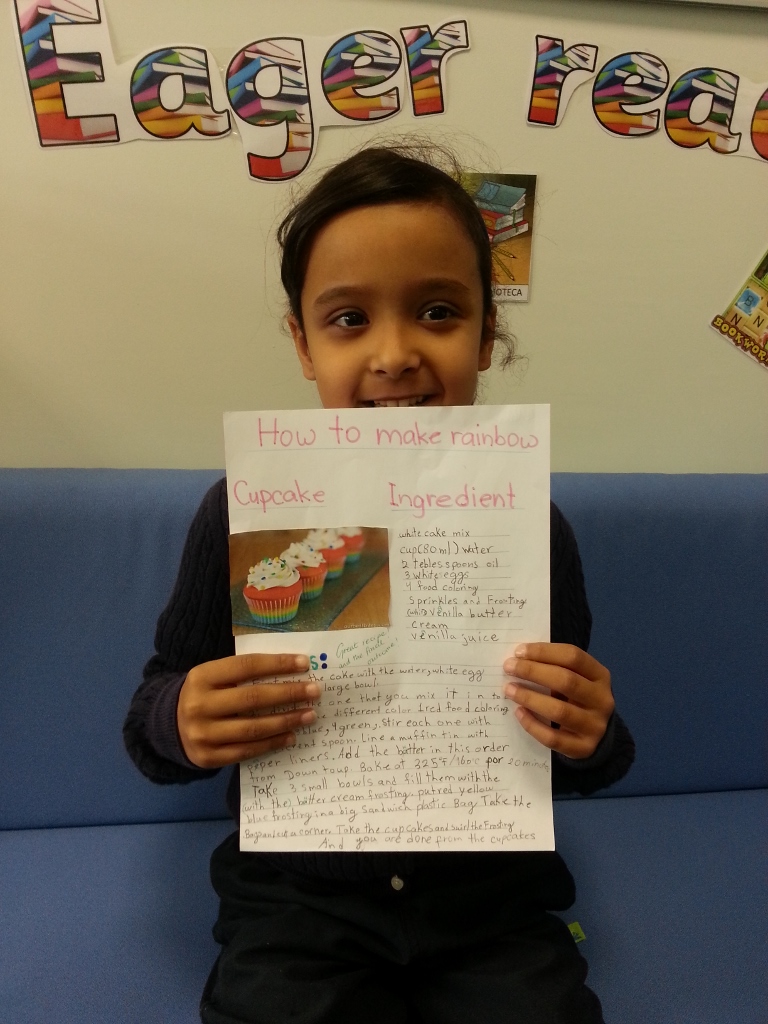 Eager rea
IOTECA
BOOKWOR
N
How to make rainbow
Cupcake
Ingredient
white cake mix
cup(80ml) water
2 tebles spoons oil
3 white eggs
4 food coloring
Sprinkles and Frosting
(white) venilla butter
cream
venilla juice
Great recipe
and the final
outcome!
s:
the cake with the water, white egg
large bowl.
the one that you mix it in to
different color (red food coloring
blue, 4 green). Stir each one with
spoon. Line a muffin tin with
paper liners. Add the batter in this order
from Down to up. Bake at 325°F/160c for 20 minute
Take 3 small bowls and fill them with the
(with the) butter cream frosting. put red yellow
blue frosting in a big sandwich plastic Bag. Take the
Bags and cut a corner. Take the cupcakes and swirl the Frosting
And you are done from the cupcakes